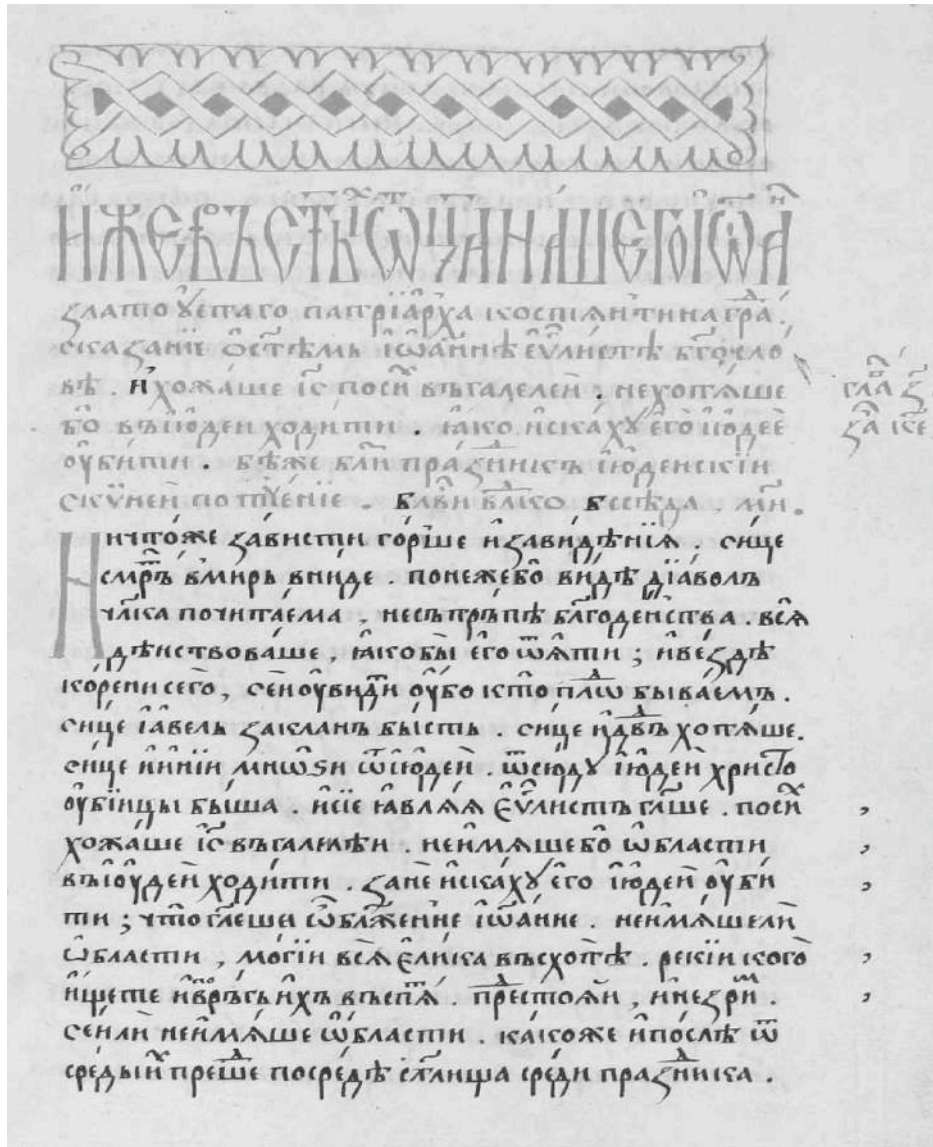 И҆́же въ ст҃ы́хъ ѿц҃а на́шегѡ і҆ѡа́нна
златоу́стаго патрїа́рха костянтина гра́да
сказанїе ѡ҆ ст҃ѣмь і҆ѡа́ннѣ є҆ѵⷢ҇листѣ бг҃осло
вѣ . И҆ хожа́ше і҆с҃ по си́хъ въ галеле́и . не хотѧ́ше
бо въ і҆юде́и ходи́ти . ꙗ҆́ко и҆ска́хꙋ є҆го̀ і҆юде́є
оу҆би́ти . бѣ́ же бли́з пра́здникъ і҆юде́искїи
скѵне́и потче́нїе . бл҃ви влⷣко бесѣ́да . м҃и .
Ничто́же за́висти го́рше и҆ зави́дѣнїѧ . си́це
сме́рть в ми́ръ вни́де . поне́же бо ви́дѣ дїа́волъ
чл҃ка почита́ема , не сътрьпѣ̀ бл҃годе́нства . всѧ̀
дѣ́иствоваше , ꙗ҆́кобы є҆го̀ ѿѧ́ти ; и҆ везде́
ко́рени сего̀ , се́и оу҆ви́дит оу҆́бо кто̀ пло́дѡ быва́емъ .
си́це і҆а́вель закла́нъ бы́сть . си́це и҆ дв҃дъ хотѧ́ше .
си́це и҆ и҆нїи мно́ѕи ѿ і҆юде́и . ѿсю́дꙋ і҆юде́и христо
оу҆бїицы бы́ша . и҆ сїѐ ꙗ҆влѧ́ѧ є҆ѵⷢ҇листъ гл҃ше . по си́х
хожа́ше і҆с҃ въ галиле́и . не и҆мѧ́ше бо ѡ҆́бласти
въ і҆оу҆де́и ходи́ти . зане́ и҆ска́хꙋ є҆го̀ і҆юде́и оу҆би́
ти ; что̀ гл҃еши ѡ҆ бл҃же́нне і҆ѡа́нне . не и҆мѧ́ше ли
ѡ҆́бласти , моги́и всѧ̀ є҆ли́ка въсхо́тѣ . реки́и кого̀
и҆́щете и҆ вре́гъ и҆́хъ въспѧ́т . пⷣрестоѧ́и , и҆ не зри́м .
се́и ли не и҆мѧ́ше ѡ҆́бласти . ка́коже и҆ по́слѣ ѿ
среды̀ и҆х пре́ⷲ҇ше посредѣ̀ ст҃лища средѝ пра́здника .